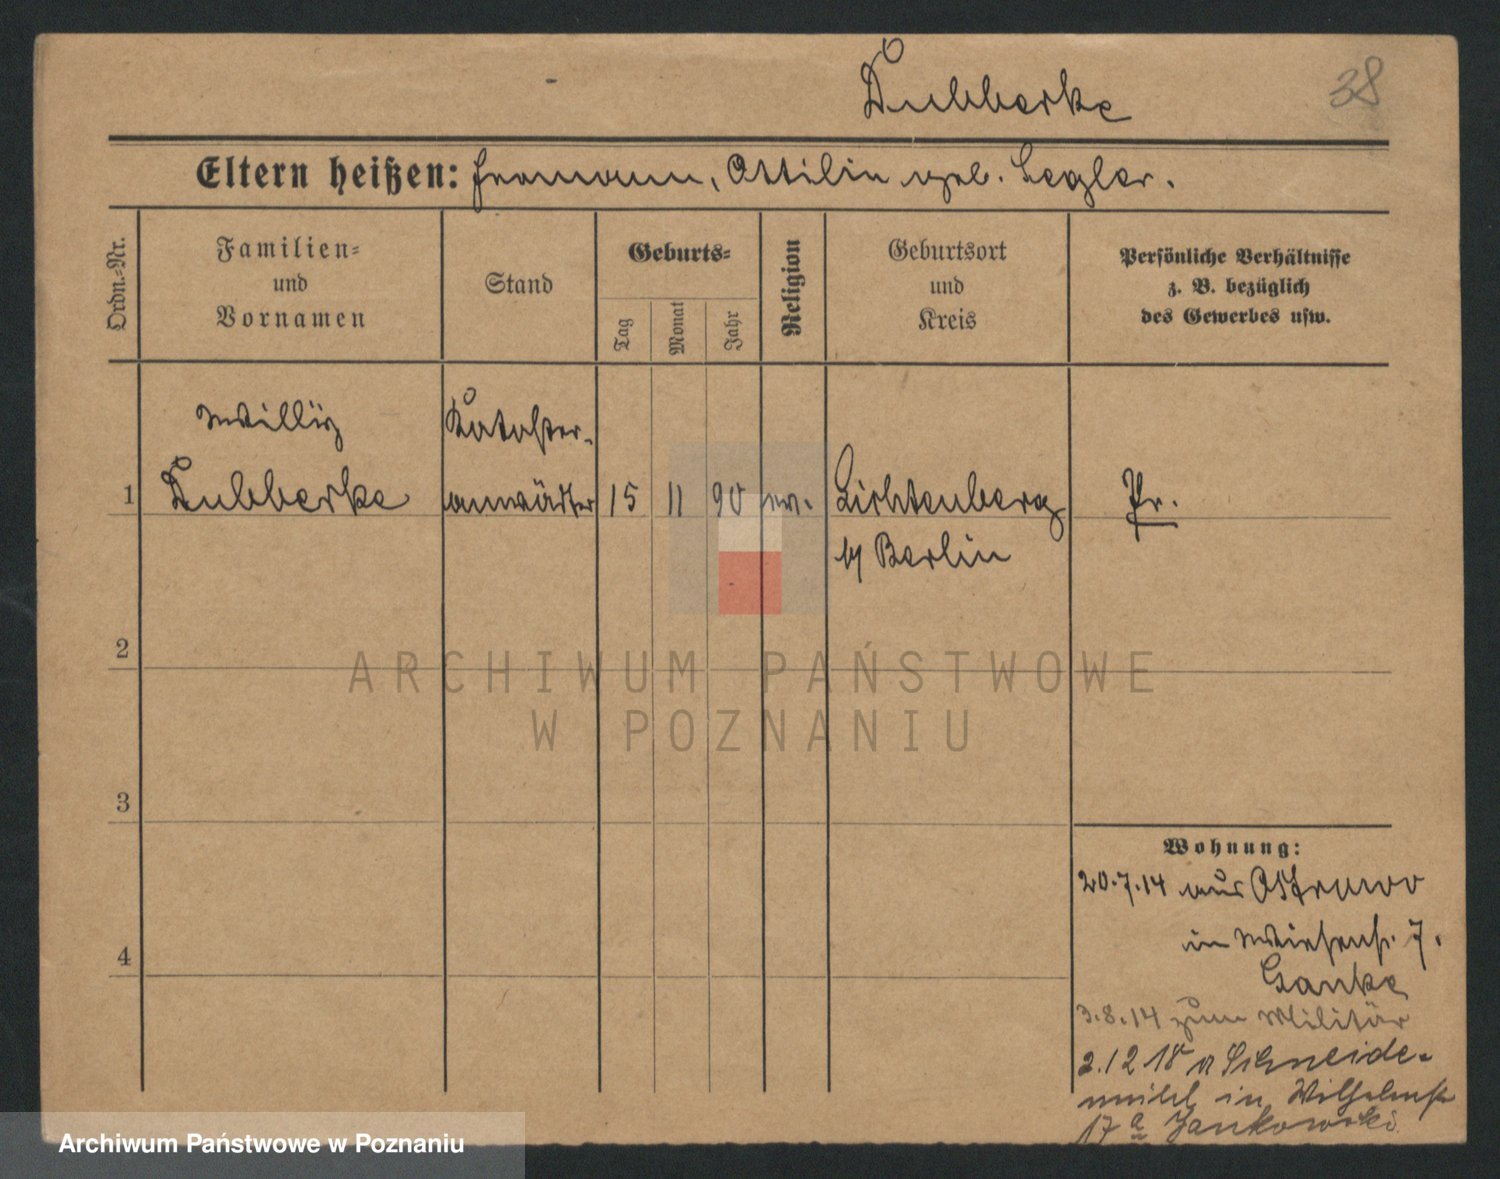 Lubberke
38
Eltern heißen: Hermann, Ottilie geb. Segler.
Ordn.-Nr.
Familien-
und
Vornamen
Stand
Geburts-
Tag
Monat
Jahr
Religion
Geburtsort
und
Kreis
Persönliche Verhältnisse
z. B. bezüglich
des Gewerbes usw.
Willy
Kataster-
1 Lubberke anwärter 15 11 90 ev. Lichtenberg Pr.
b/ Berlin
2
3
4
Wohnung:
20.7.14 aus Ostrowo
in Wiesenstr. 7.
Ganke
3.8.14 zum Militär
2.12 18 a Schneide-
mühl in Wilhelmstr
17 a Jankowski
ARCHIWUM PAŃSTWOWE
W POZNANIU
Archiwum Państwowe w Poznaniu